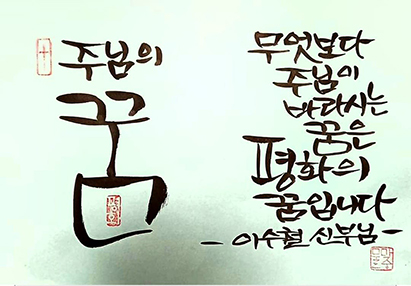 주님의
꿈
무엇보다
주님이
바라시는
꿈은
평화의
꿈입니다
- 이수철 신부님 -